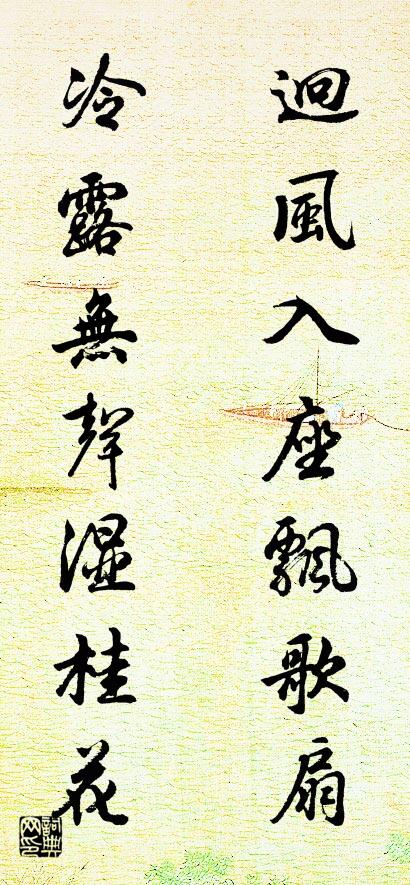 迴風入座飄歌扇
冷露無聲濕桂花
詞典网印